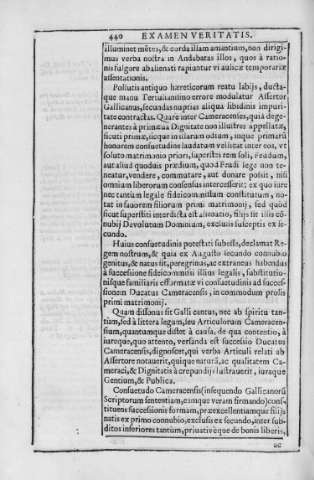 440 EXAMEN VERITATIS.
illuminet mētes, & corda illam amantium, non dirigi-
mus verba nostra in Andabatas illos, quos à ratio-
nis fulgore abalienati rapiuntur vi aulicæ temporariæ
assentationis.
Pollutis antiquo hæreticorum reatu labijs, ducta-
que manu Tertullianismo errore modulatur Assertor
Gallicanus, secundas nuptias aliqua libidinis impuri-
tate contractas. Quare inter Cameracenses, quia dege-
nerantes à primæua Dignitate non illustres appellatæ,
sicuti primæ, sicque in istarum odium, simque primarū
honorem consuetudine laudatum velitat inter eos, vt
soluto matrimonio priori, superstes rem soli, feudum,
aut aliud quoduis prædium, quod Feudi lege non te-
neatur, vendere, commutare, aut donare possit, nisi
omnium liberorum consensus intercesserit: ex quo iure
nec tantùm legale fideicommissum constitutum, no-
tat in fauorem filiorum primi matrimonij, sed quod
sicut superstiti interdicta est alienatio, filijs sit illis cō-
nubij Deuolutum Dominium, exclusis susceptis ex se-
cundo.
Huius consuetudinis potestati subesse, declamat Re-
gem nostrum, & quia ex Augusto secundo connubio
genitus, & natus sit, peregrinas, ac extraneas habendas
à successione fideicommissi illius legalis, substitutio-
nisque familiaris esse natæ vi consuetudinis ad succes-
sionem Ducatus Cameracensis, in commodum prolis
primi matrimonij.
Quàm dissonus sit Galli cantus, nec ab spiritu tan-
tùm, sed à littera legum, seu Articulorum Cameracen-
sium, quantumque distet à causa, de qua contentio, à
iureque, quo attento, versanda est successio Ducatus
Cameracensis, dignoscet, qui verba Articuli relati ab
Assertore notauerit, quique naturā, ac qualitatem Ca-
meraci, & Dignitatis à crepundijs lustrauerit, iuraque
Gentium, & Publica.
Consuetudo Cameracensis (insequendo Gallicanorū
Scriptorum sententiam, eamque veram firmando) cons-
tituens successionis formam, præexcellentiamque filijs
natis ex primo connubio, exclusis ex secundo, inter sub-
ditos inferiores tantùm, priuatiuèque de bonis liberis,
ac